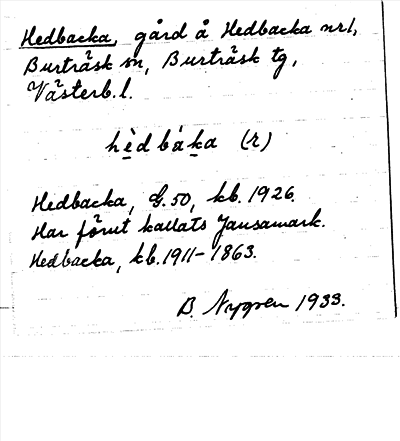 Hedbacka, gård å Hedbacka nr 1,
Burträsk sn, Burträsk tg,
Västerb. l.
hèdbáka (r)
Hedbacka, G. 50, kb. 1926.
Har förut kallats Jansamark.
Hedbacka, kb. 1911-1863.
B. Nygren 1933.